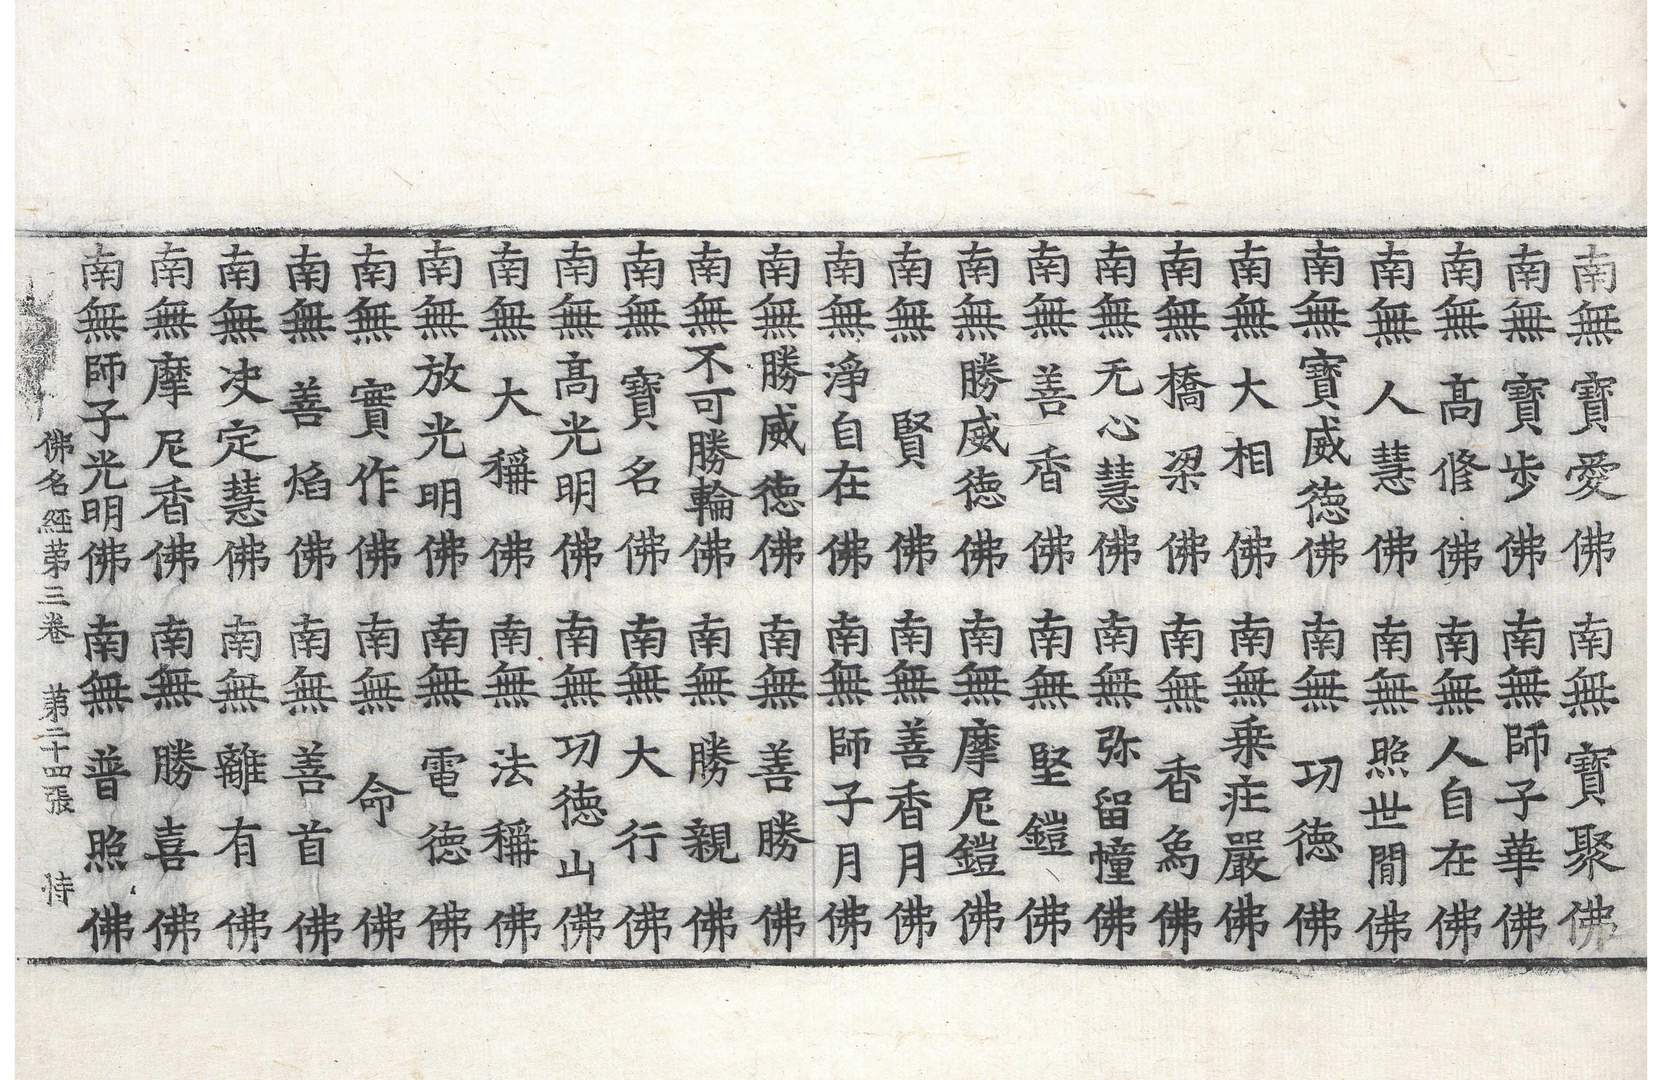 南無寶愛佛南無寶聚佛
南無寶步佛南無師子華佛
南無高修佛南無人自在佛
南無人慧佛南無照世間佛
南無寶威德佛南無功德佛
南無大相佛南無乗庄嚴佛
南無橋梁佛南無香烏佛
南無无心慧佛南無弥留幢佛
南無善香佛南無堅鎧佛
南無勝威德佛南無摩尼鎧佛
南無賢佛南無善香月佛
南無淨自在佛南無師子月佛
南無勝威德佛南無善勝佛
南無不可勝輪佛南無勝親佛
南無寶名佛南無大行佛
南無高光明佛南無功德山佛
南無大稱佛南無法稱佛
南無放光明佛南無電德佛
南無實作佛南無命佛
南無善焰佛南無善首佛
南無决定慧佛南無離有佛
南無摩尼香佛南無勝喜佛
南無師子光明佛南無普照佛
佛名經苐三卷 苐二十四張 恃